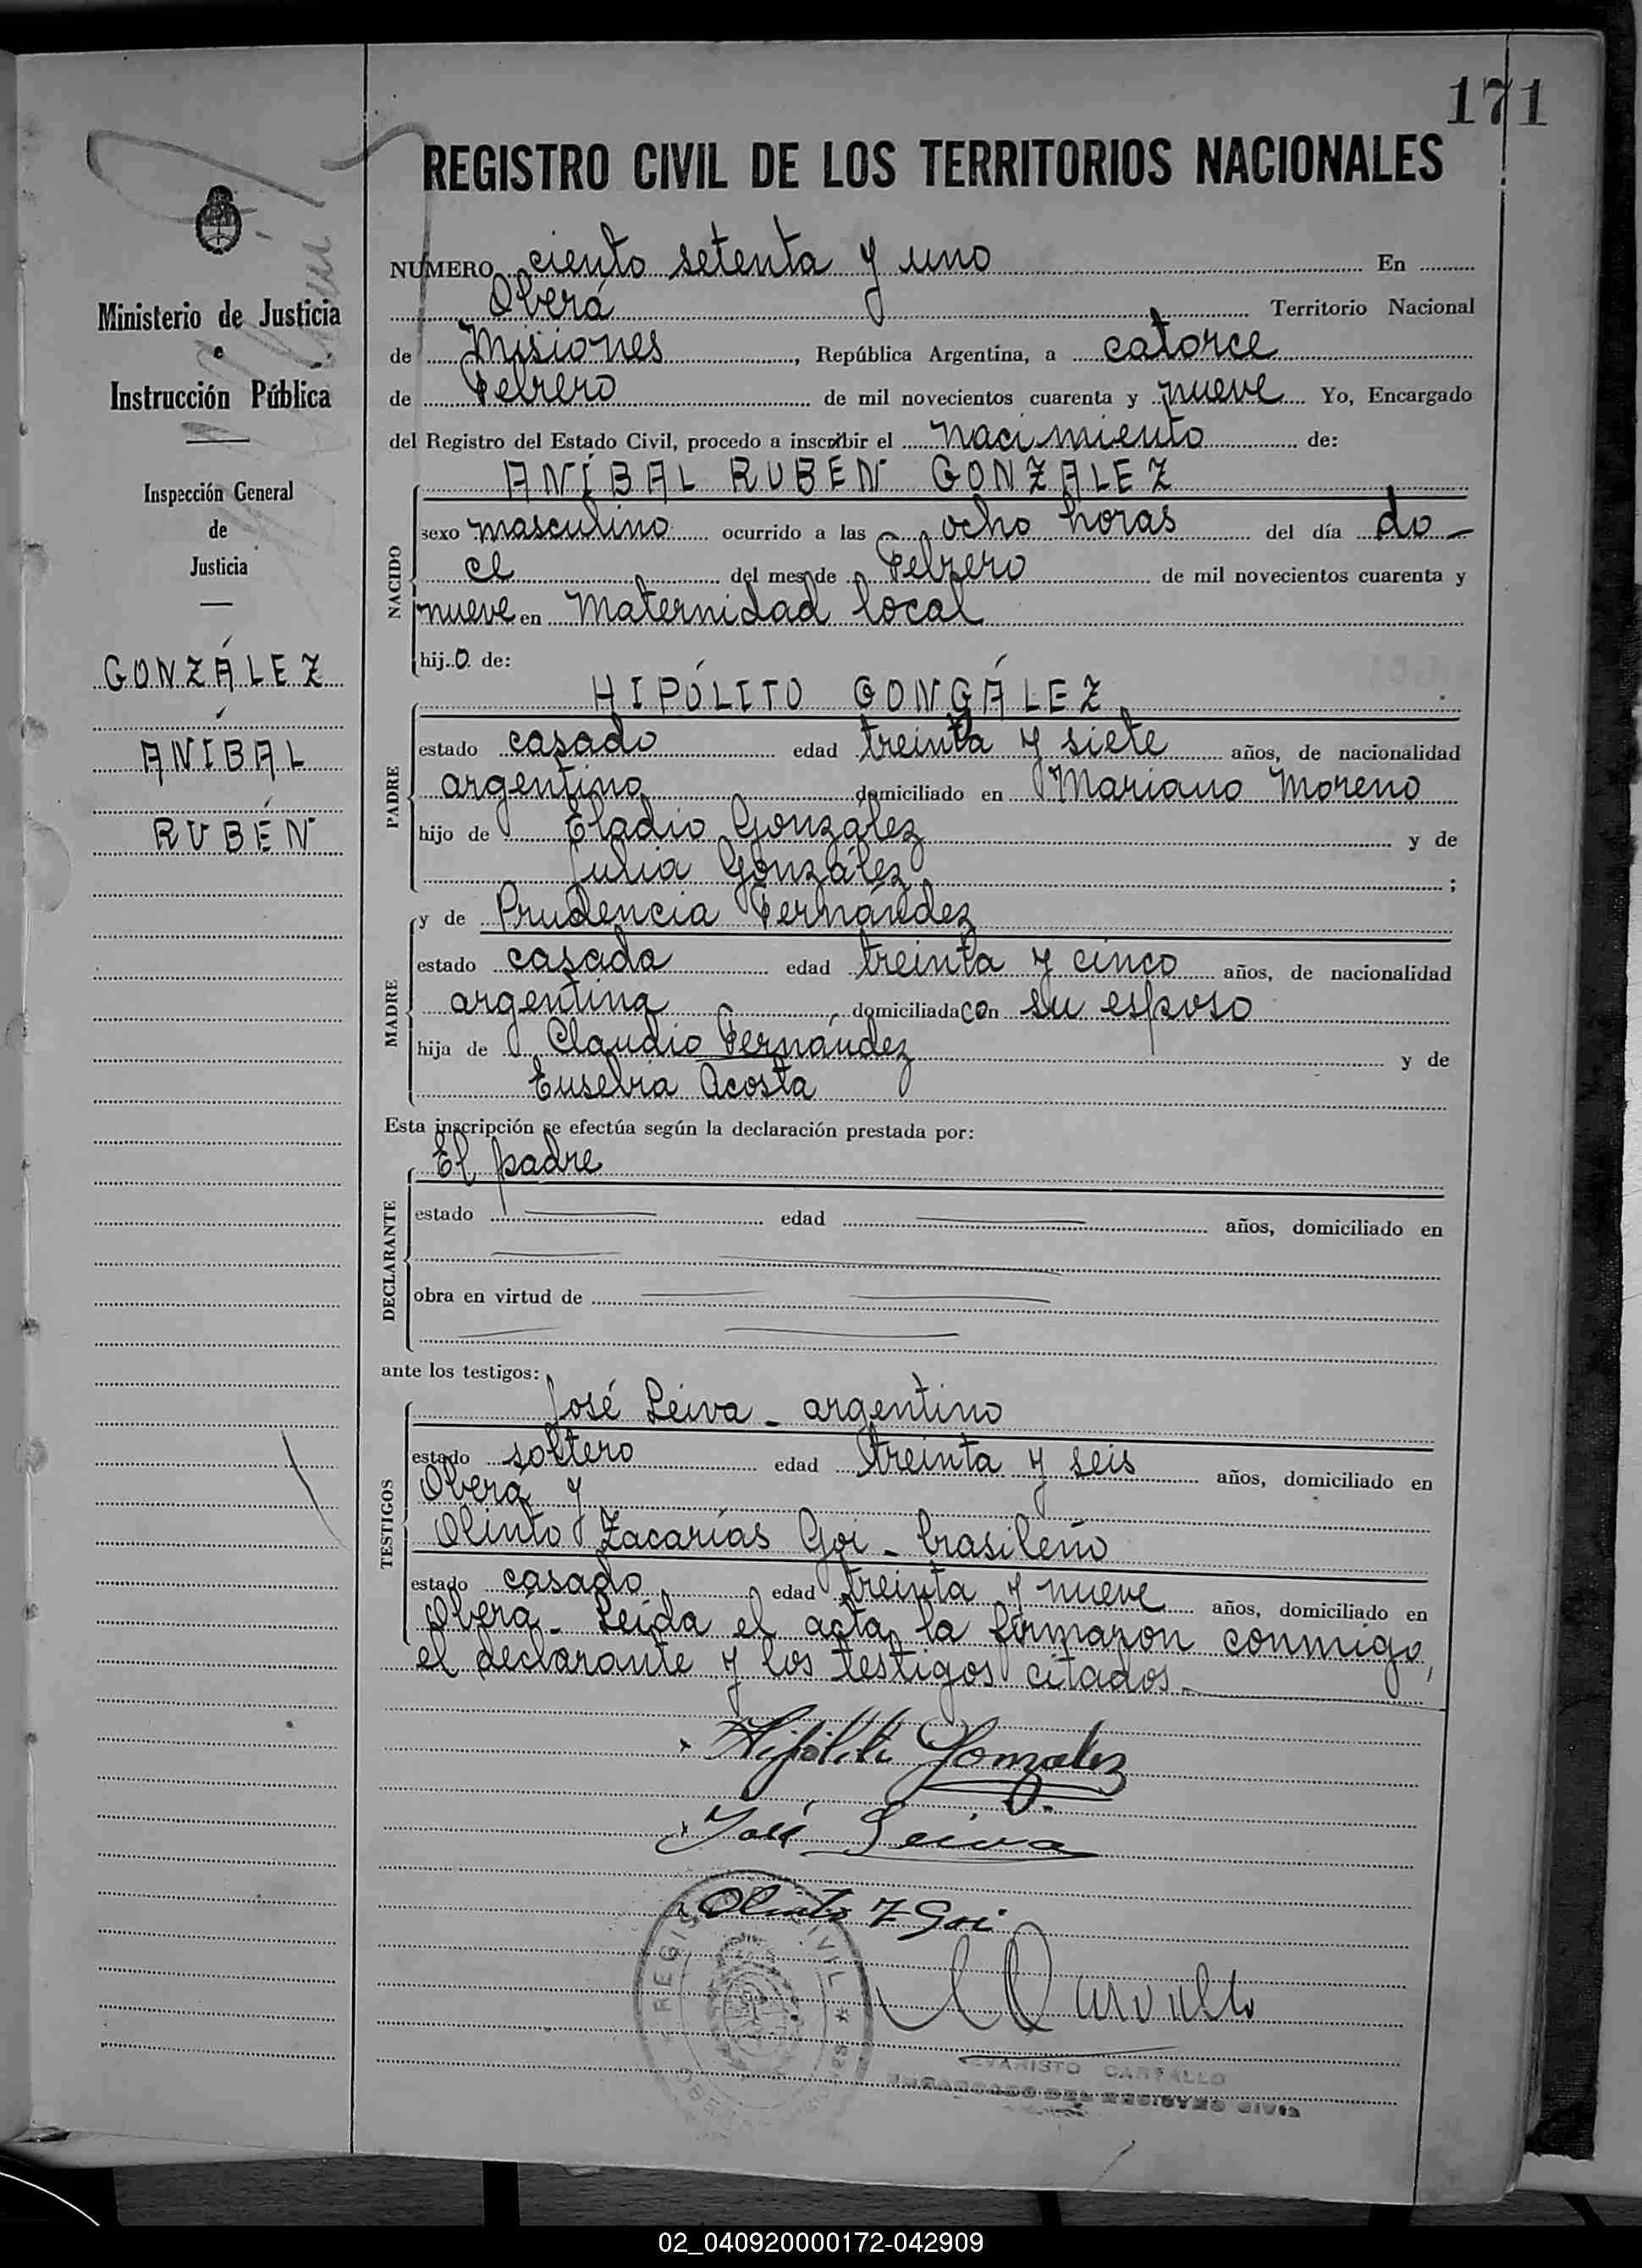 171
REGISTRO CIVIL DE LOS TERRITORIOS NACIONALES
Ministerio de Justicia
e
Instrucción Pública
Inspección General
de
Justicia
GONZÁLEZ
ANÍBAL
RUBÉN
NUMERO ciento setenta y uno En
Oberá Territorio Nacional
de Misiones, República Argentina, a catorce
de Febrero de mil novecientos cuarenta y nueve Yo, Encargado
del Registro del Estado Civil, procedo a inscribir el nacimiento de:
ANÍBAL RUBEN GONZALEZ
NACIDO
sexo masculino ocurrido a las ocho horas del día do-
ce del mes de Febrero de mil novecientos cuarenta y
nueve en Maternidad local
hijo de:
HIPÓLITO GONGÁLEZ
PADRE
estado casado edad treinta y siete años, de nacionalidad
argentino domiciliado en Mariano Moreno
hijo de Eladio González y de
Julia González ;
MADRE
y de Prudencia Fernández
estado casada edad treinta y cinco años, de nacionalidad
argentina, domiciliada con su esposo
hija de Claudio Fernández y de
Eusebia Acosta
Esta inscripción se efectúa según la declaración prestada por:
DECLARANTE
El padre
estado edad años, domiciliado en
obra en virtud de
ante los testigos:
TESTIGOS
José Leiva - argentino
estado soltero edad treinta y seis años, domiciliado en
Oberá y
Olinto Zacarías Goi - brasileño
estado casado edad treinta y nueve años, domiciliado en
Oberá - Leída el acta, la firmaron conmigo,
el declarante y los testigos citados.
Hipólito Gonzalez
José Leiva
Olinto Z Goi
REGISTRO CIVIL
EVARISTO CARVALLO
ENCARGADO DEL REGISTRO CIVIL
02_040920000172-042909